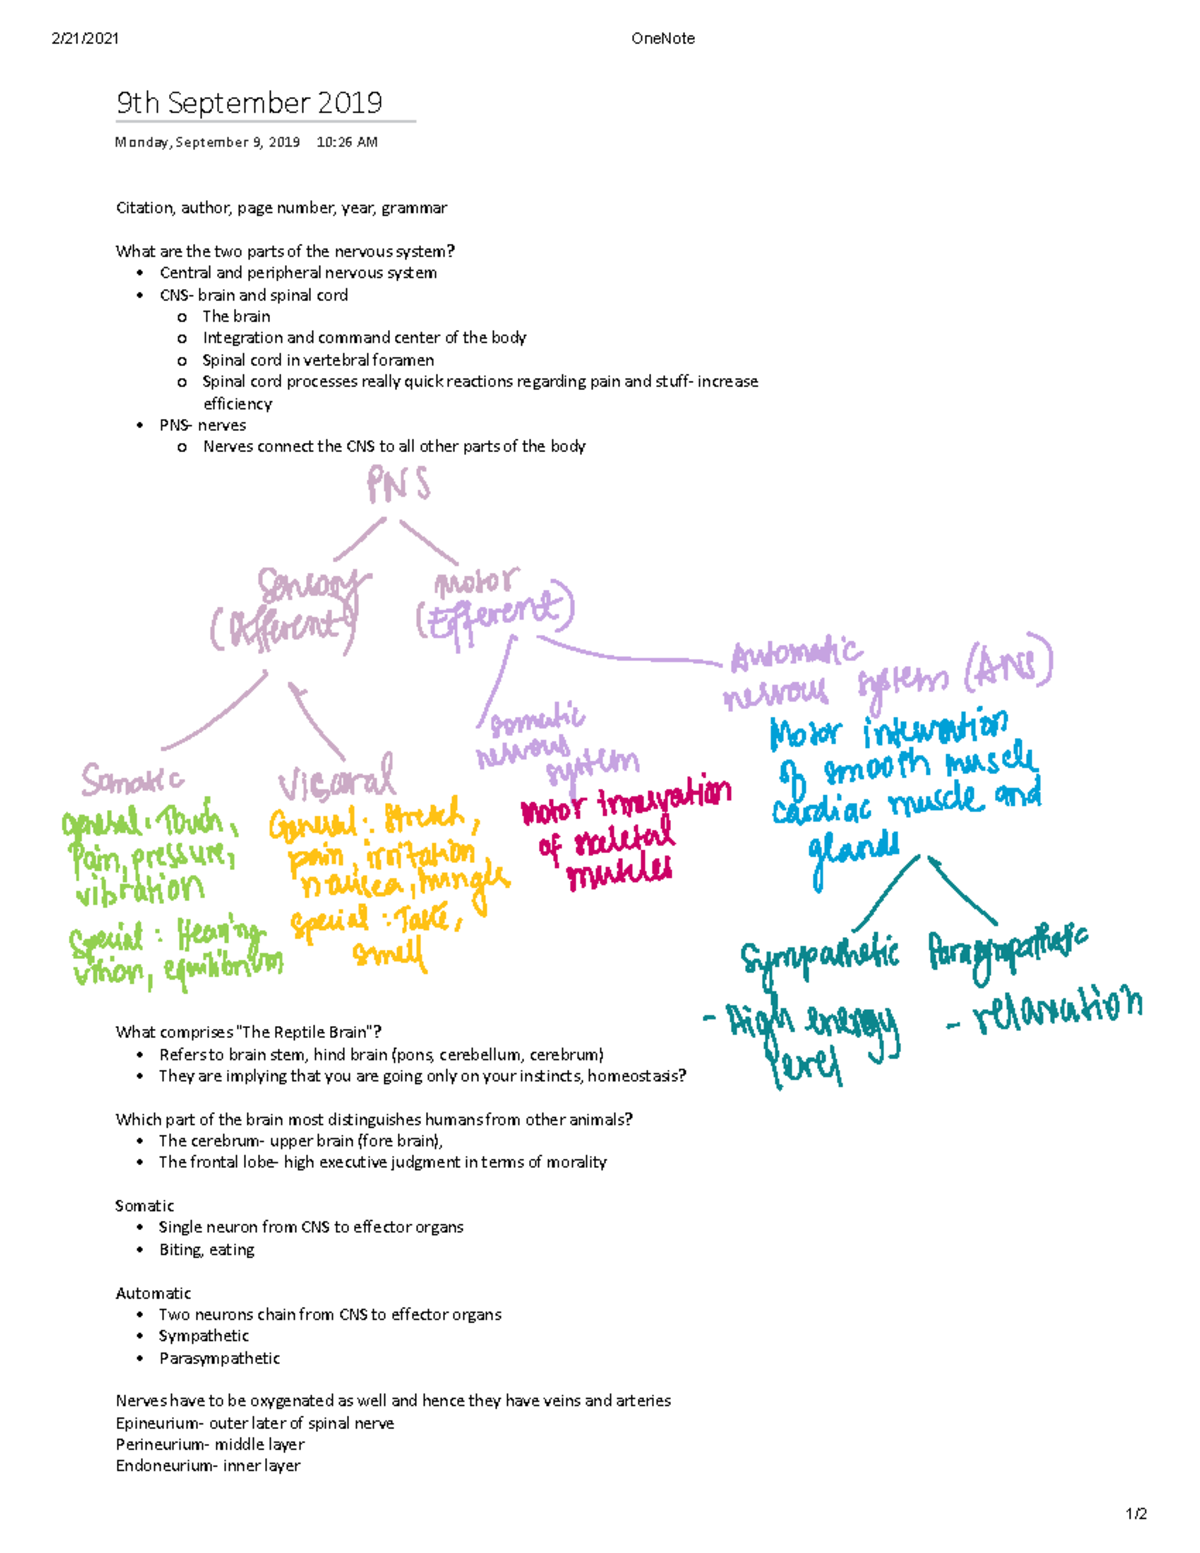 2/21/2021 OneNote
9th September 2019
Monday, September 9, 2019 10:26 AM
Citation, author, page number, year, grammar
What are the two parts of the nervous system?
• Central and peripheral nervous system
• CNS- brain and spinal cord
o The brain
o Integration and command center of the body
o Spinal cord in vertebral foramen
o Spinal cord processes really quick reactions regarding pain and stuff- increase
efficiency
• PNS- nerves
o Nerves connect the CNS to all other parts of the body
PNS
Sensory
(Afferent)
Motor
(Efferent)
Somatic
General: Touch,
Pain, pressure,
vibration
Special: Hearing
vision, equilibrium
Visceral
General: Stretch,
pain, irritation
nausea, hunger
Special: Taste,
smell
Somatic
nervous
system
Motor innervation
of skeletal
muscles
Automatic
nervous system (ANS)
Motor intervation
of smooth muscle
cardiac muscle and
glands
Sympathetic
- High energy
level
Parasympathetic
- relaxation
What comprises "The Reptile Brain"?
• Refers to brain stem, hind brain (pons, cerebellum, cerebrum)
• They are implying that you are going only on your instincts, homeostasis?
Which part of the brain most distinguishes humans from other animals?
• The cerebrum- upper brain (fore brain),
• The frontal lobe- high executive judgment in terms of morality
Somatic
• Single neuron from CNS to effector organs
• Biting, eating
Automatic
• Two neurons chain from CNS to effector organs
• Sympathetic
• Parasympathetic
Nerves have to be oxygenated as well and hence they have veins and arteries
Epineurium- outer later of spinal nerve
Perineurium- middle layer
Endoneurium- inner layer
1/2